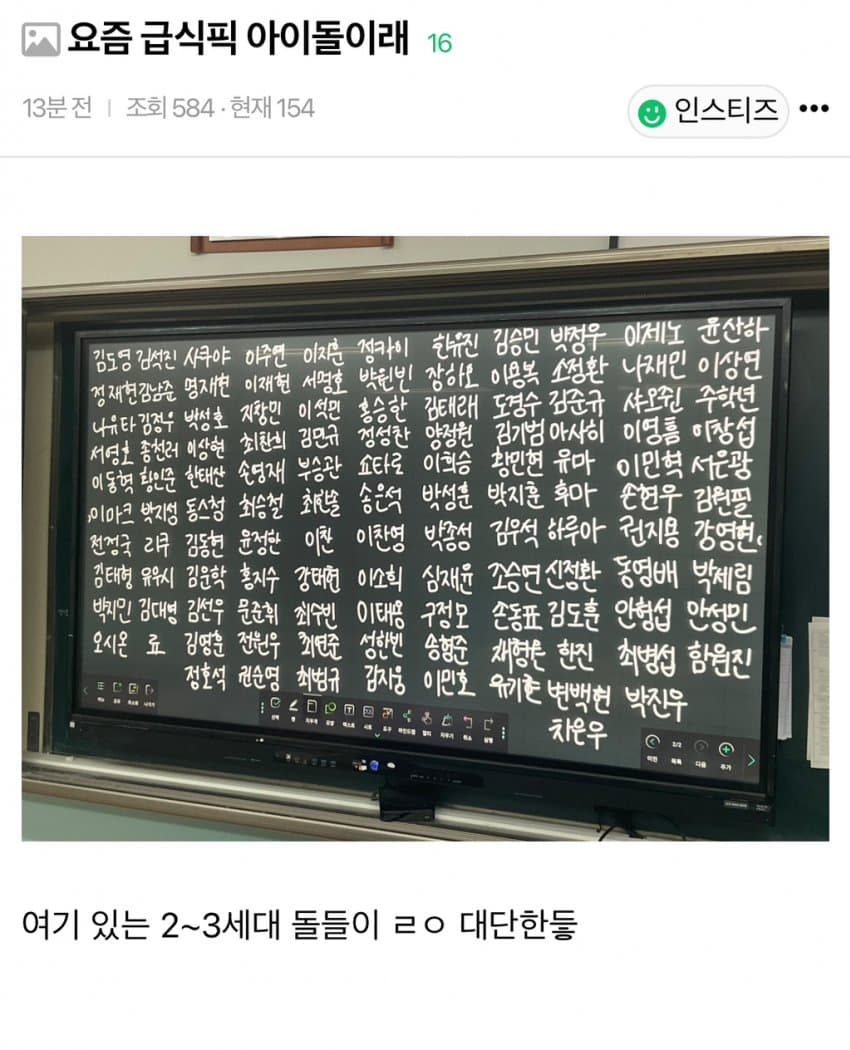 요즘 급식픽 아이돌이래 16
13분 전 | 조회 584 · 현재 154
인스티즈
김도영 김석진 사쿠야 이주연 이지훈 정카이 한유진 김승민 박정우 이제노 윤산하
정재현 김남준 명재현 이재현 서명호 박원빈 장하오 이용복 소정환 나재민 이상연
나유타 김정우 박성호 지창민 이석민 홍승한 김태래 도경수 김준규 샤오쥔 주학년
서영호 종천러 이상현 최찬희 김민규 정성찬 양정원 김기범 아사히 이영흠 이창섭
이동혁 황인준 한태산 손영재 부승관 쇼타로 이희승 황민현 유마 이민혁 서은광
이마크 박지성 동스청 최승철 최한솔 송은석 박성훈 박지훈 후마 손현우 김원필
전정국 리쿠 김동현 윤정한 이찬 이찬영 박종성 김우석 하루아 권지용 강영현
김태형 유우시 김운학 홍지수 강태현 이소희 심재윤 조승연 신정환 동영배 박제림
박지민 김대영 김선우 문준휘 최수빈 이태용 구정모 손동표 김도훈 안형섭 안성민
오시온 료 김영훈 전원우 최연준 성한빈 송형준 채형원 한진 최병섭 함원진
정호석 권순영 최범규 김지웅 이민호 유기현 변백현 박진우
차은우
2/2
이전 목록 다음 추가
여기 있는 2~3세대 돌들이 ㄹㅇ 대단한듷